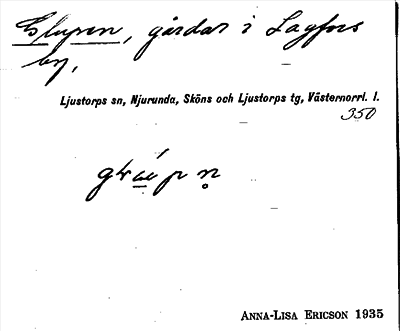 Glupen, gårdar i Lagfors
by,
Ljustorps sn, Njurunda, Sköns och Ljustorps tg, Västernorrl. l.
350
ANNA-LISA ERICSON 1935